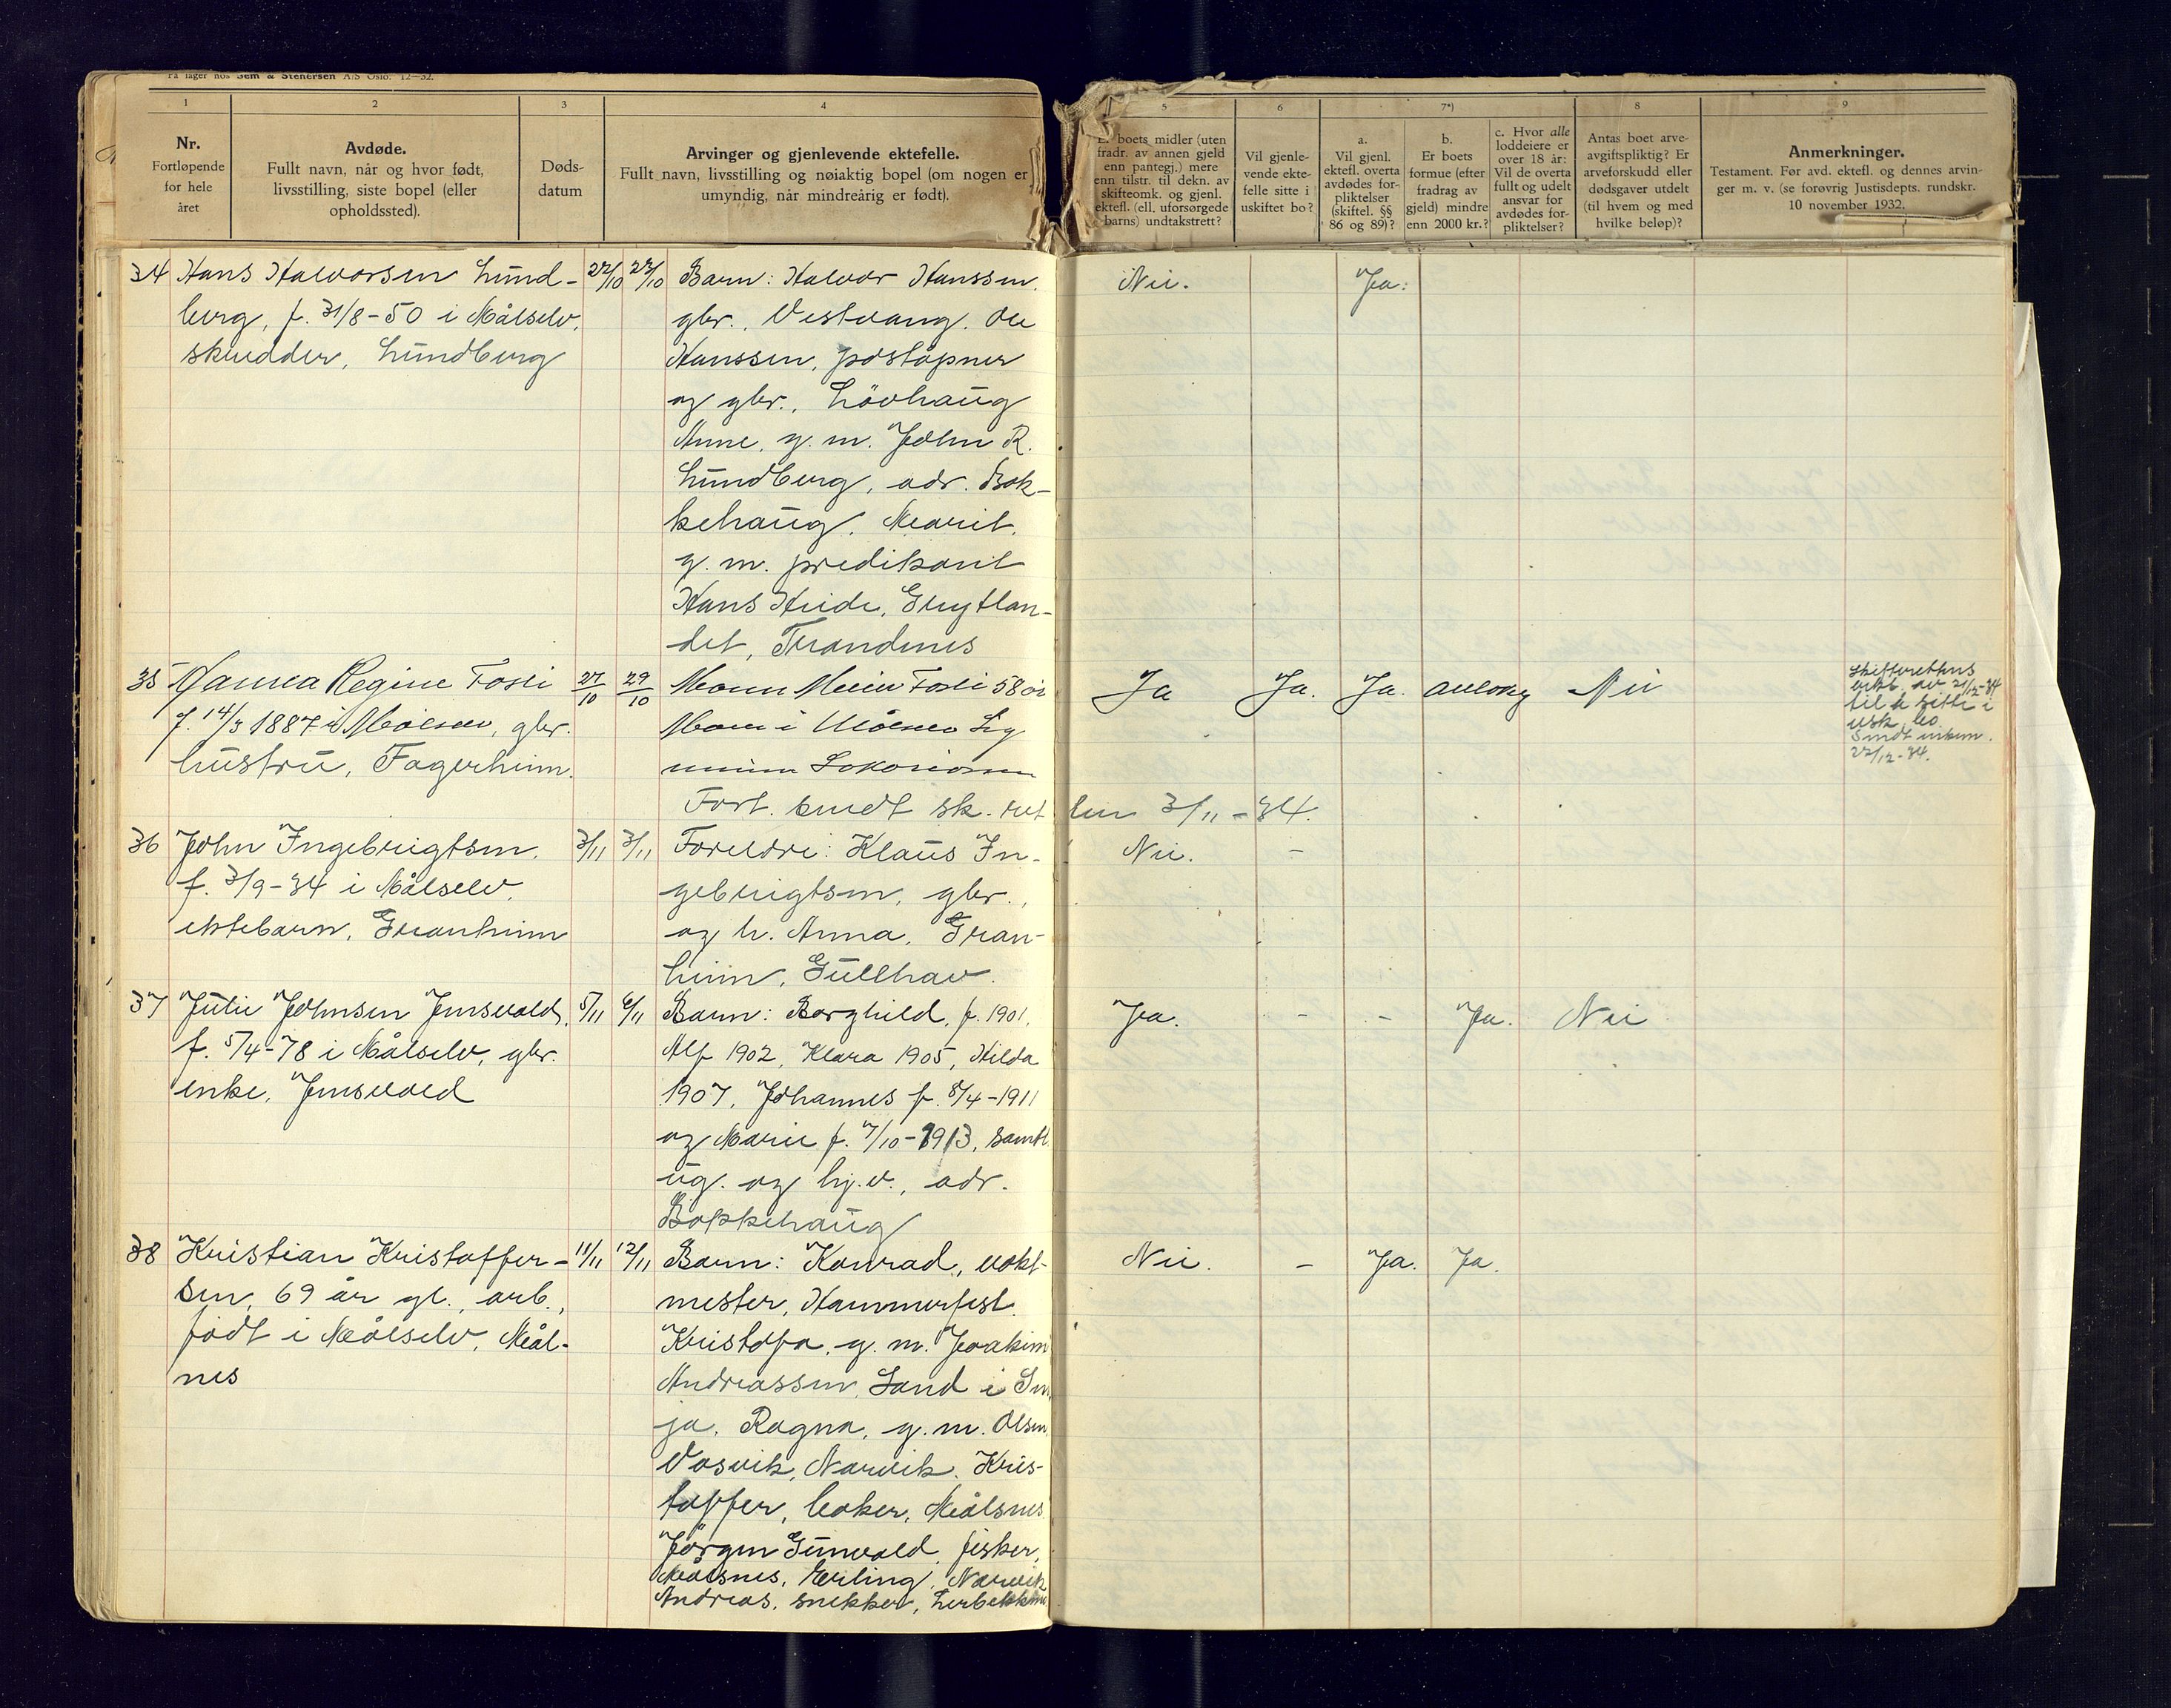 På lager hos Sem & Stenersen A/S Oslo. 12—32.
1
Nr.
Fortløpende
for hele
året
2
Avdøde.
Fullt navn, når og hvor født,
livsstilling, siste bopel (eller
opholdssted).
3
Døds-
datum
4
Arvinger og gjenlevende ektefelle.
Fullt navn, livsstilling og nøiaktig bopel (om nogen er
umyndig, når mindreårig er født).
5
Er boets midler (uten
fradr. av annen gjeld
enn pantegj.) mere
enn tilstr. til dekn. av
skifteomk. og gjenl.
ektefl. (ell. uforsørgede
barns) undtakstrett?
6
Vil gjenle-
vende ekte-
felle sitte i
uskiftet bo?
7*)
a.
Vil gjenl.
ektefl. overta
avdødes for-
pliktelser
(skiftel. §§
86 og 89)?
b.
Er boets
formue (efter
fradrag av
gjeld) mindre
enn 2000 kr.?
c. Hvor alle
loddeiere er
over 18 år:
Vil de overta
fullt og udelt
ansvar for
avdødes for-
pliktelser?
8
Antas boet arve-
avgiftspliktig? Er
arveforskudd eller
dødsgaver utdelt
(til hvem og med
hvilke beløp)?
9
Anmerkninger.
Testament. Før avd. ektefl. og dennes arvin-
ger m. v. (se forøvrig Justisdepts. rundskr.
10 november 1932.
34 Hans Halvorsen Lund-
berg, f. 31/8-50 i Målselv,
skredder, Lundberg
22/10
Barn: Halvor Hanssen,
gbr., Vestvang. Ole
Hanssen, poståpner
og gbr., Lövhaug
Anne, g. m. John R.
Lundberg, adr. Bak-
kehaug. Marit,
g. m. predikant
Hans Heide, Grytlan-
det, Trandenes
Nei. Ja.
35 Regine Fosli
f. 14/3 1887 i Målselv, gbr.
hustru, Fagerheim.
27/10 29/10
Mann Fosli 58 år
Mor i Målselv
Fort. sendt sk. ret
ten 3/11-34.
Ja Ja. Ja. Nei
Skifterettens
bekr. av 21/12-34
til å sitte i
usk. bo
Sendt
22/12-34.
36 John Ingebrigtsen,
f. 3/9-34 i Målselv,
ektebarn, Granheim
3/11 3/11
Foreldre: Klaus In-
gebrigtsen, gbr.,
og h. Anna, Gran-
heim, Gullhav.
Nei. -
37 Julie Johnsen Jensvold,
f. 5/4-78 i Målselv, gbr.
enke, Jensvold
5/11 6/11
Barn: Borghild, f. 1901,
Alf 1902, Klara 1905, Hilda
1907, Johannes f. 8/4-1911
og Marie f. 7/10-1913, samtl.
ug. og hj.v., adr.
Bakkehaug
Ja. - - Ja. Nei
38 Kristian Kristoffer-
sen, 69 år gl., arb.,
født i Målselv, Mål-
nes
11/11 12/11
Barn: Konrad, vakt-
mester, Hammerfest.
Kristofa, g. m. Joakim
Andreassen, Sand i Sen
ja. Ragna, g. m. Olsen
Vasvik, Narvik. Kris-
toffer, baker, Målsnes
Jörgen Gunvald, fisker,
Målsnes, Erling, Narvik
Andreas, snekker,
Nei. - Ja. Ja.